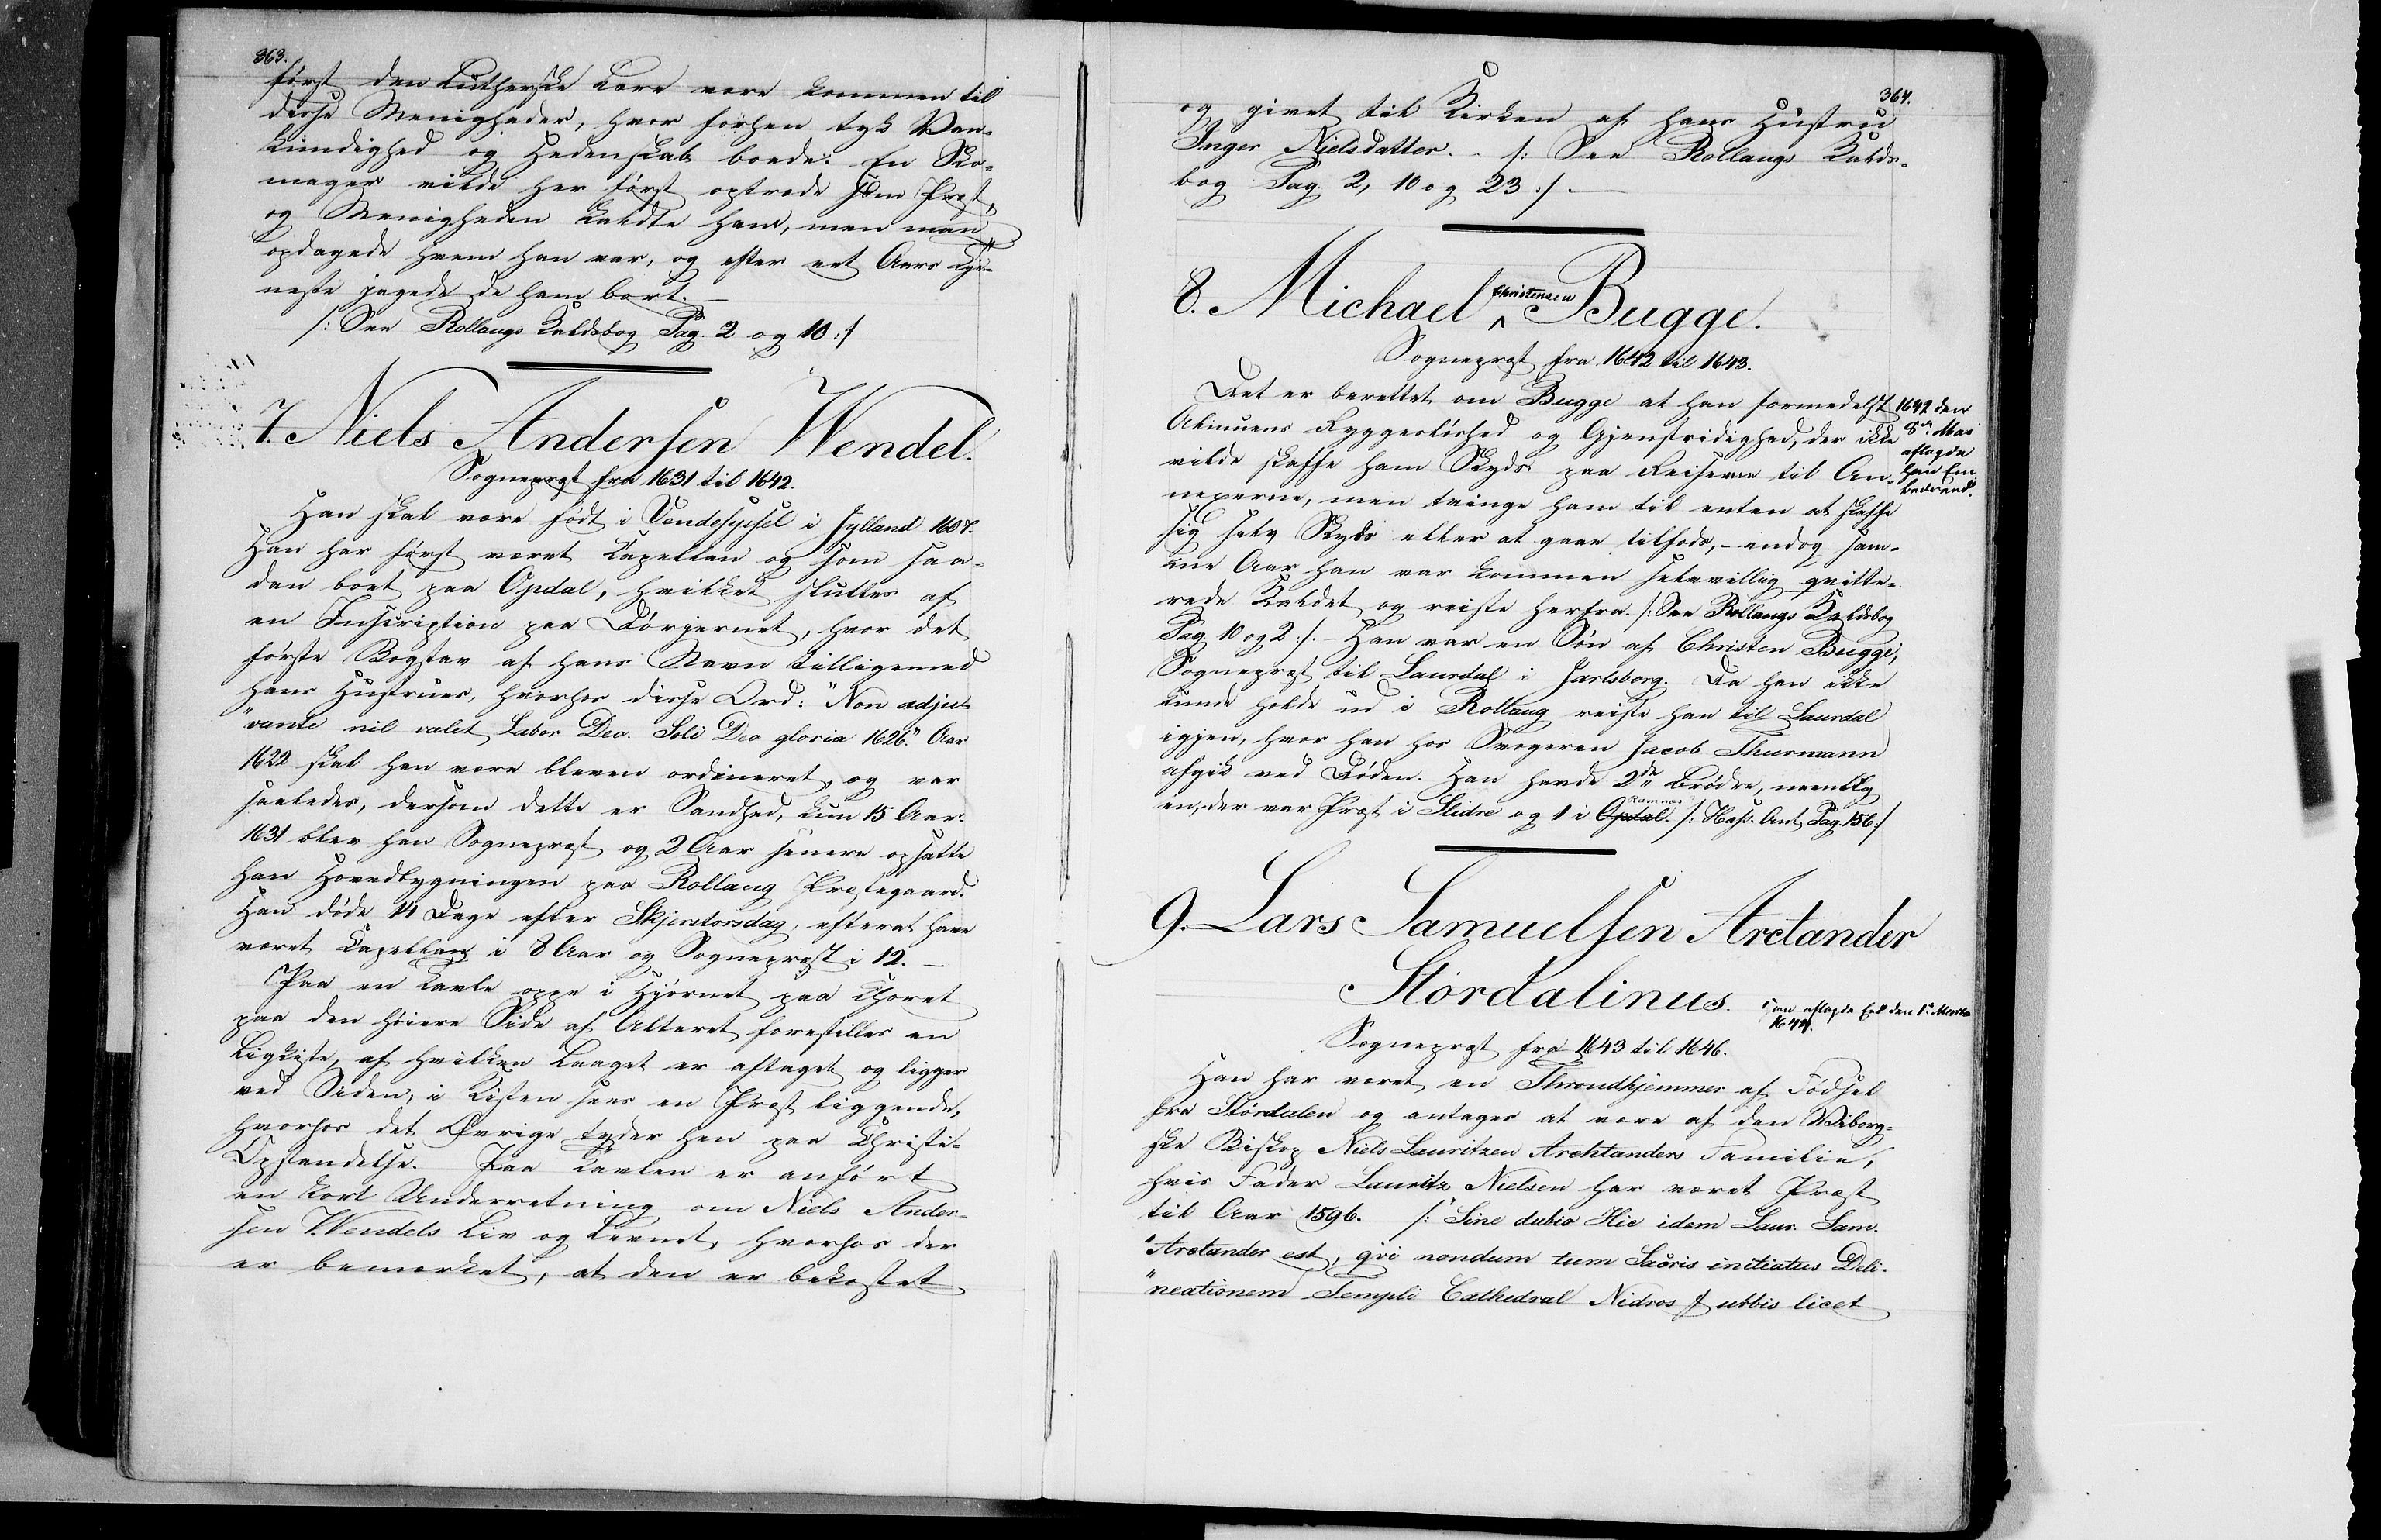 363.
først den Lutherske Lære være kommen til
disse Menigheder, hvor forhen tyk Van-
kundighed og Hedenskab boede. En Sko-
mager vilde her først optræde som Præst,
og Menigheden kaldte ham, men man
opdagede hvem han var, og efter eet Aars Tje-
neste jagede de ham bort. —
/: See Rollaugs Kaldsbog Pag. 2 og 10 :/
7. Niels Andersen Wendel.
Sognepræst fra 1631 til 1642.
Han skal være født i Vendesyssel i Jylland 1607.
Han har først været Kapellan og som saa-
dan boet paa Opdal, hvilket sluttes af
en Inscription paa Dørjernet, hvor det
første Bogstav af hans Navn tilligemed
hans Hustrues, hvorhos disse Ord: "Non adju-
"vante nil valet Labor Deo. Soli Deo gloria 1626." Aar
1622 skal han være bleven ordineret, og var
saaledes, dersom dette er Sandhed, kun 15 Aar.
1631 blev han Sognepræst og 2 Aar senere opsatte
han Hovedbygningen paa Rollaug Præstegaard.
Han døde 14 Dage efter Skjærtorsdag, efterat have
været Capellan i 8 Aar og Sognepræst i 12. —
Paa en Tavle oppe i Hjørnet paa Choret
paa den høiere Side af Alteret forestilles en
Ligkiste, af hvilken Laaget er aftaget og ligger
ved Siden; i Kisten sees en Præst liggende,
hvorhos det Øvrige tyder hen paa Christi-
Opstandelse. Paa Tavlen er anført
en kort Underretning om Niels Ander-
sen Wendels Liv og Levnet, hvorhos der
er bemærket, at den er bekostet
364.
og givet til Kirken af hans Hustrue
Inger Nielsdatter. - /: See Rollaugs Kalds-
bog Pag. 2, 10 og 23 :/. —
8. Michael Christensen Bugge.
Sognepræst fra 1642 til 1643.
Det er berettet om Bugge at han formedelst
Almuens Ryggesløshed og Gjenstridighed, der ikke
vilde skaffe ham Skyds paa Reiserne til An-
nexerne, men tvinge ham til enten at skaffe
sig selv Skyds eller at gaae tilfods, - endog sam-
me Aar han var kommen selvvillig qvitte-
rede Kaldet og reiste herfra. /: See Rollaugs Kaldsbog
Pag. 10 og 2 :/. - Han var en Søn af Christen Bugge,
Sognepræst til Laurdal i Jarlsborg. Da han ikke
kunde holde ud i Rollaug reiste han til Laurdal
igjen, hvor han hos Svogeren Jacob Thurmann
afgik ved Døden. Han havde 2de Brødre, nemlig
en, der var Præst i Slidre og 1 i Opdal. Ramnæs /: Hass. Ant. Pag. 156 :/
1642 den
8de Mai
aflagde
han Em-
bedseed.
9. Lars Samuelsen Arctander
Stórdalinus.
Han aflagde Eed den 1ste Martii
1644.
Sognepræst fra 1643 til 1646.
Han har været en Throndhjemmer af Fødsel
fra Stórdalen og antages at være af den Wiborg-
ske Biskop Niels Lauritzen Archtanders Familie,
hvis Fader Lauritz Nielsen har været Præst
til Aar 1596. /: "Sine dubio Hic idem Laur. Sam.
"Arctander est, qvi nondum tum Sacris initiatus Deli-
"neationem Templi Cathedral Nidros & urbis licet